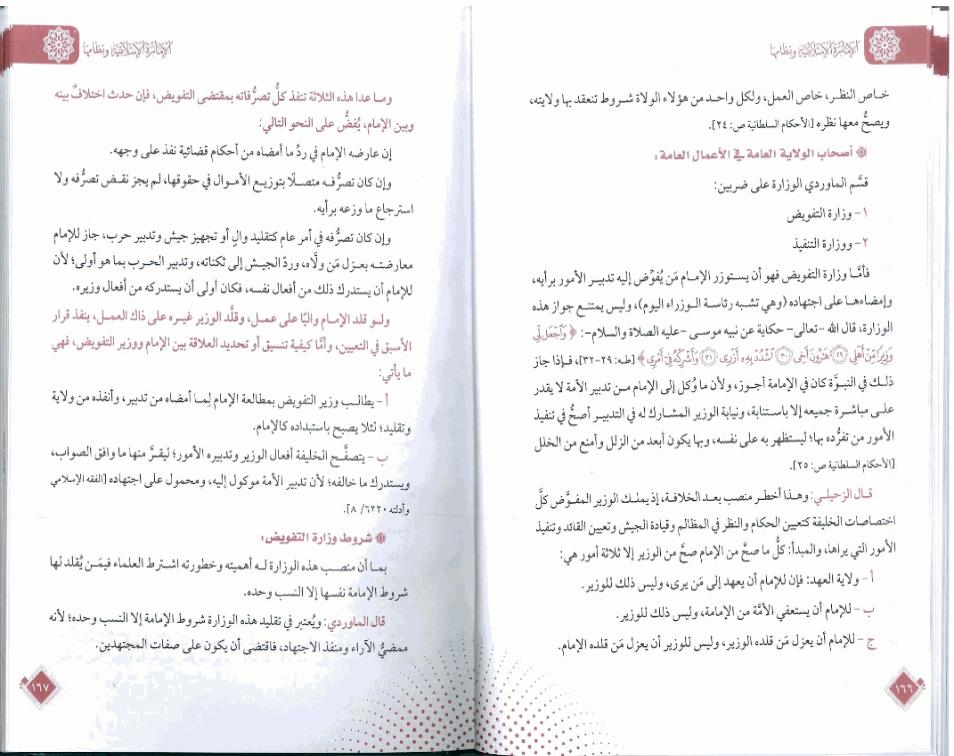 الإمارة الإسلامية ونظامها
خـاص النظـر، خاص العمل، ولكل واحـد من هؤلاء الولاة شـروط تنعقد بها ولايته،
ويصحُّ معها نظره [الأحكام السلطانية ص: ٢٤].
أصحاب الولاية العامة في الأعمال العامة:
قسَّم الماوردي الوزارة على ضربين:
١- وزارة التفويض
٢- ووزارة التنفيذ
فأمَّا وزارة التفويض فهو أن يسـتوزر الإمـام مَن يُفوِّض إليه تدبـير الأمور برأيه،
وإمضاءهـا على اجتهاده (وهي تشـبه رئاسـة الـوزراء اليوم)، وليس يمتنـع جواز هذه
الوزارة، قال الله -تعالى- حكاية عن نبيه موسـى -عليه الصلاة والسـلام-: ﴿ وَٱجۡعَل لِّي
وَزِيرٗا مِّنۡ أَهۡلِي ۝٢٩ هَٰرُونَ أَخِي ۝٣٠ ٱشۡدُدۡ بِهِۦٓ أَزۡرِي ۝٣١ وَأَشۡرِكۡهُ فِيٓ أَمۡرِي ﴾ [طه: ٢٩-٣٢]، فـإذا جاز
ذلـك في النبـوَّة كان في الإمامة أجـوز، ولأن ما وُكل إلى الإمام مـن تدبير الأمة لا يقدر
علـى مباشـرة جميعه إلا باسـتنابة، ونيابة الوزير المشـارك له في التدبـير أصحُّ في تنفيذ
الأمور من تفرُّده بها؛ ليستظهر به على نفسه، وبها يكون أبعد من الزلل وأمنع من الخلل
[الأحكام السلطانية ص: ٢٥].
قـال الزحيلي: وهـذا أخطـر منصب بعـد الخلافة، إذ يملـك الوزير المفـوَّض كلَّ
اختصاصات الخليفة كتعيين الحكام والنظر في المظالم وقيادة الجيش وتعيين القائد وتنفيذ
الأمور التي يراها، والمبدأ: كلُّ ما صحَّ من الإمام صحَّ من الوزير إلا ثلاثة أمور هي:
أ- ولاية العهد: فإن للإمام أن يعهد إلى مَن يرى، وليس ذلك للوزير.
ب- للإمام أن يستعفي الأمَّة من الإمامة، وليس ذلك للوزير.
ج- للإمام أن يعزل مَن قلده الوزير، وليس للوزير أن يعزل مَن قلده الإمام.
١٦٦
الإمارة الإسلامية ونظامها
وما عدا هذه الثلاثة تنفذ كلُّ تصرُّفاته بمقتضى التفويض، فإن حدث اختلافٌ بينه
وبين الإمام، يُفضُّ على النحو التالي:
إن عارضه الإمام في ردِّ ما أمضاه من أحكام قضائية نفذ على وجهه.
وإن كان تصرُّفـه متصـلًا بتوزيـع الأمـوال في حقوقها، لم يجز نقـض تصرُّفه ولا
استرجاع ما وزعه برأيه.
وإن كان تصرُّفه في أمر عام كتقليد والٍ أو تجهيز جيش وتدبير حرب، جاز للإمام
معارضتـه بعـزل مَن ولَّاه، وردّ الجيـش إلى ثكناته، وتدبير الحـرب بما هو أولى؛ لأن
للإمام أن يستدرك ذلك من أفعال نفسه، فكان أولى أن يستدركه من أفعال وزيره.
ولـو قلد الإمـام واليًا على عمـل، وقلَّد الوزير غيره على ذاك العمـل، ينفذ قرار
الأسبق في التعيين، وأمَّا كيفية تنسيق أو تحديد العلاقة بين الإمام ووزير التفويض، فهي
ما يأتي:
أ- يطالـب وزير التفويض بمطالعة الإمام لِمـا أمضاه من تدبير، وأنفذه من ولاية
وتقليد؛ لئلا يصبح باستبداده كالإمام.
ب- يتصفَّـح الخليفة أفعال الوزير وتدبيره الأمور؛ ليقـرَّ منها ما وافق الصواب،
ويستدرك ما خالفه؛ لأن تدبير الأمة موكول إليه، ومحمول على اجتهاده [الفقه الإسلامي
وأدلته ٦٢٢٠/ ٨].
شروط وزارة التفويض:
بمـا أن منصـب هـذه الوزارة لـه أهميته وخطورته اشـترط العلماء فيمَـن يُقلد لها
شروط الإمامة نفسها إلا النسب وحده.
قال الماوردي: ويُعتبر في تقليد هذه الوزارة شروط الإمامة إلا النسب وحده؛ لأنه
ممضيُّ الآراء ومنفذ الاجتهاد، فاقتضى أن يكون على صفات المجتهدين.
١٦٧